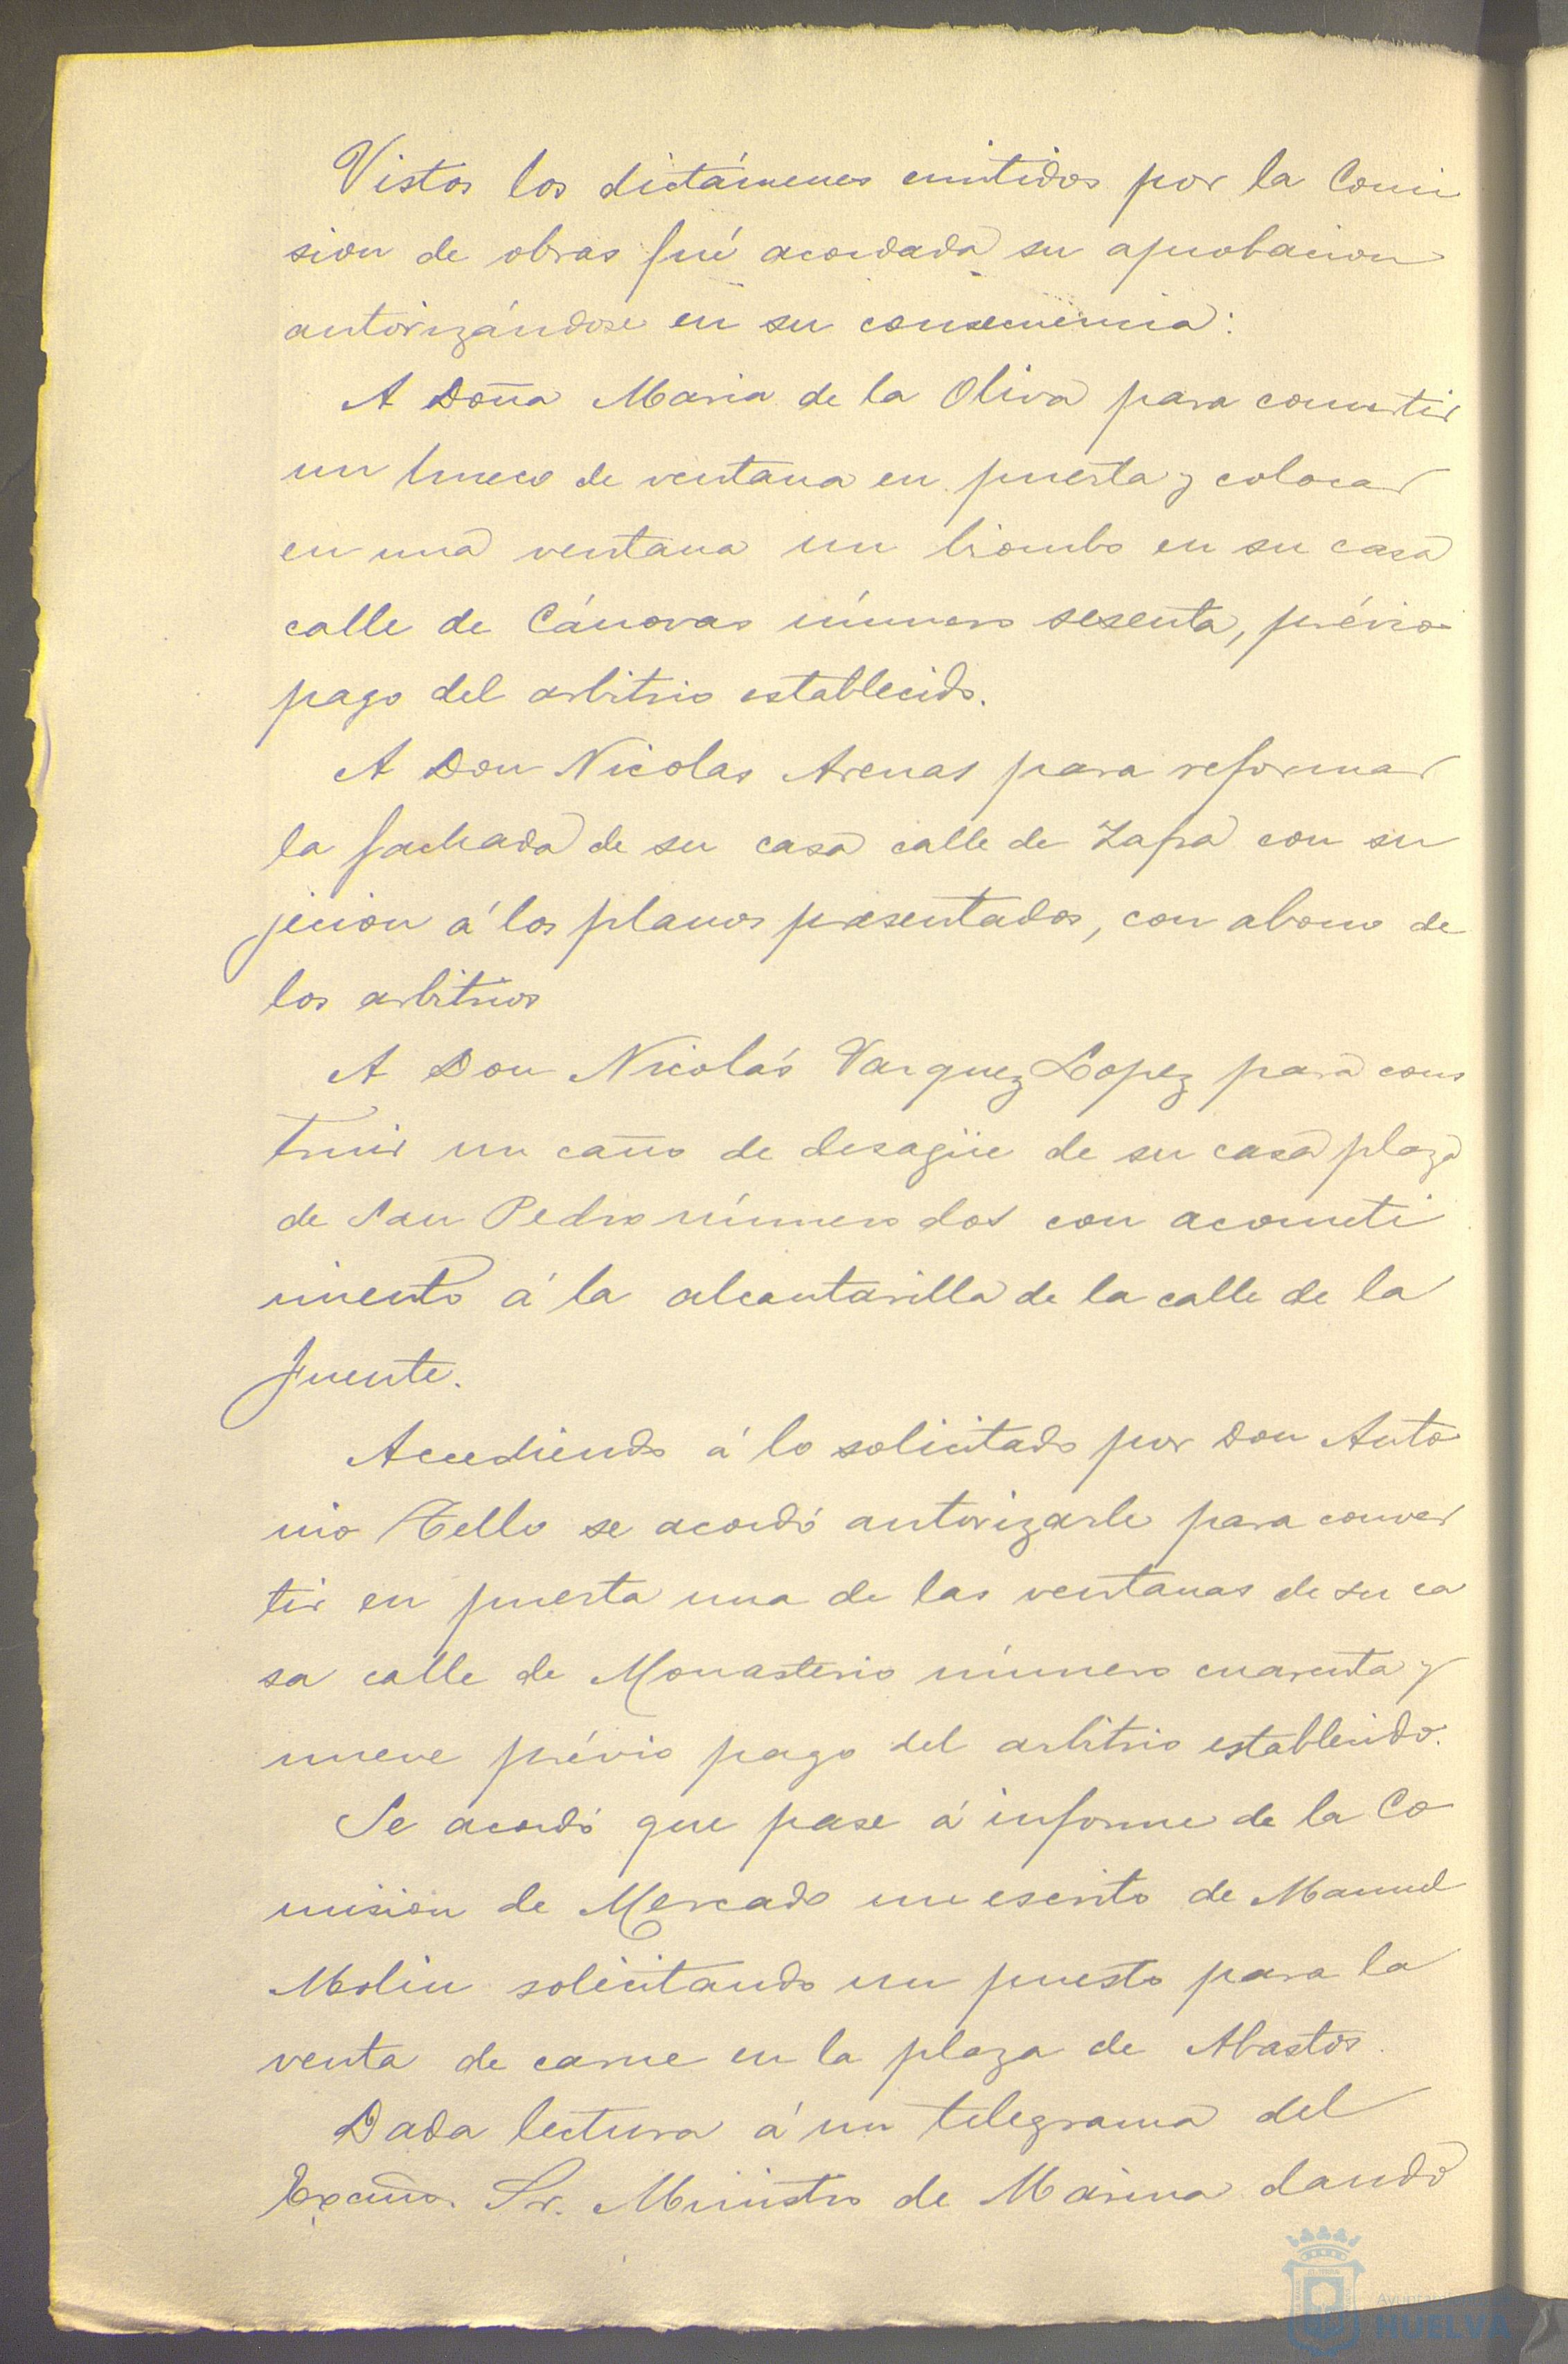 Vistos los dictámenes emitidos por la Comi
sion de obras fué acordada su aprobacion
autorizándose en su consecuencia:
A Doña Maria de la Oliva para convertir
un hueco de ventana en puerta y colocar
en una ventana un biombo en su casa
calle de Cánovas número sesenta, prévio
pago del arbitrio establecido.
A Don Nicolas Arenas para reformar
la fachada de su casa calle de Zafra con su
jecion á los planos presentados, con abono de
los arbitrios
A Don Nicolás Vazquez Lopez para cons
truir un caño de desagüe de su casa plaza
de San Pedro número dos con acometi
miento á la alcantarilla de la calle de la
fuente.
Accediendo á lo solicitado por Don Anto
nio Tello se acordó autorizarle para conver
tir en puerta una de las ventanas de su ca
sa calle de Monasterio número cuarenta y
nueve prévio pago del arbitrio establecido.
Se acordó que pase á informe de la Co
mision de Mercado un escrito de Manuel
Molin solicitando un puesto para la
venta de carne en la plaza de Abastos.
Dada lectura á un telegrama del
Excmo. Sr. Ministro de Marina dando
HUELVA